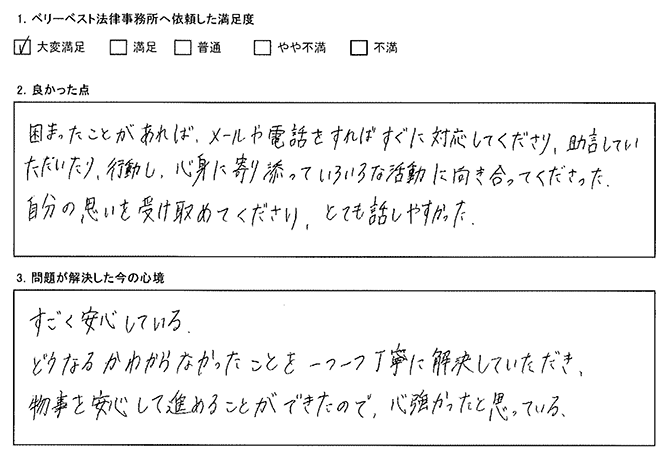 1. ベリーベスト法律事務所へ依頼した満足度
☑ 大変満足 □ 満足 □ 普通 □ やや不満 □ 不満
2. 良かった点
困まったことがあれば、メールや電話をすればすぐに対応してくださり、助言してい
ただいたり、行動し、心身に寄り添っていろいろな活動に向き合ってくださった.
自分の思いを受け取めてくださり、とても話しやすかった.
3. 問題が解決した今の心境
すごく安心している.
どうなるかわからなかったことを一つ一つ丁寧に解決していただき、
物事を安心して進めることができたので、心強かったと思っている.